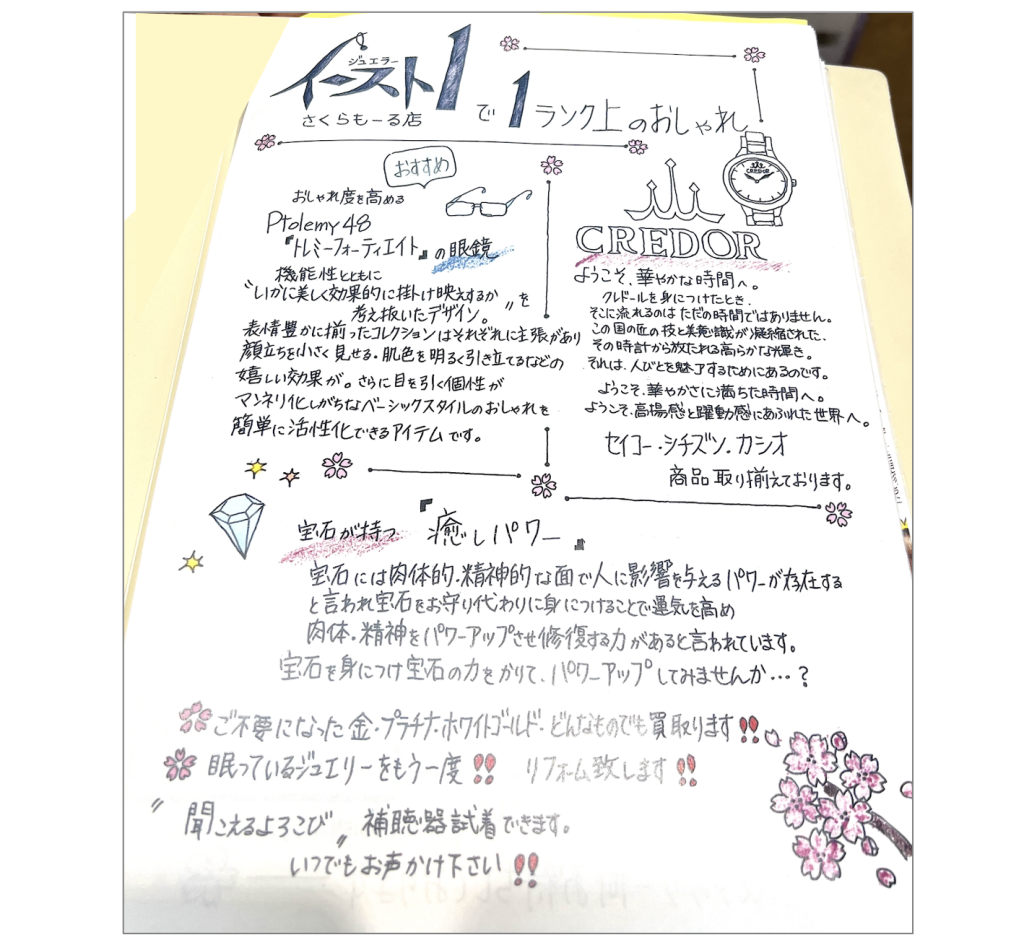 ジュエラー
イースト1
さくらもーる店
で1ランク上のおしゃれ
おすすめ
おしゃれ度を高める
Ptolemy48
『トレミーフォーティエイト』の眼鏡
機能性とともに
〝いかに美しく効果的に掛け映えするか
考え抜いたデザイン。〟を
表情豊かに揃ったコレクションはそれぞれに主張があり
顔立ちを小さく見せる・肌色を明るく引き立てるなどの
嬉しい効果が。さらに目を引く個性が
マンネリ化しがちなベーシックスタイルのおしゃれを
簡単に活性化できるアイテムです。
CREDOR
CREDOR
ようこそ、華やかな時間へ。
クレドールを身につけたとき、
そこに流れるのはただの時間ではありません。
この国の匠の技と美意識が凝縮された、
その時計から放たれる高らかな輝き。
それは、人びとを魅了するためにあるのです。
ようこそ、華やかさに満ちた時間へ。
ようこそ、高揚感と躍動感にあふれた世界へ。
セイコー・シチズン・カシオ
商品取り揃えております。
宝石が持つ『癒しパワー』
宝石には肉体的・精神的な面で人に影響を与えるパワーが存在する
と言われ宝石をお守り代わりに身につけることで運気を高め
肉体・精神をパワーアップさせ修復する力があると言われています。
宝石を身につけ宝石の力をかりて、パワーアップしてみませんか…？
ご不要になった金・プラチナ・ホワイトゴールド・どんなものでも買取ります!!
眠っているジュエリーをもう一度!! リフォーム致します!!
〝聞こえるよろこび〟補聴器試着できます。
いつでもお声かけ下さい!!